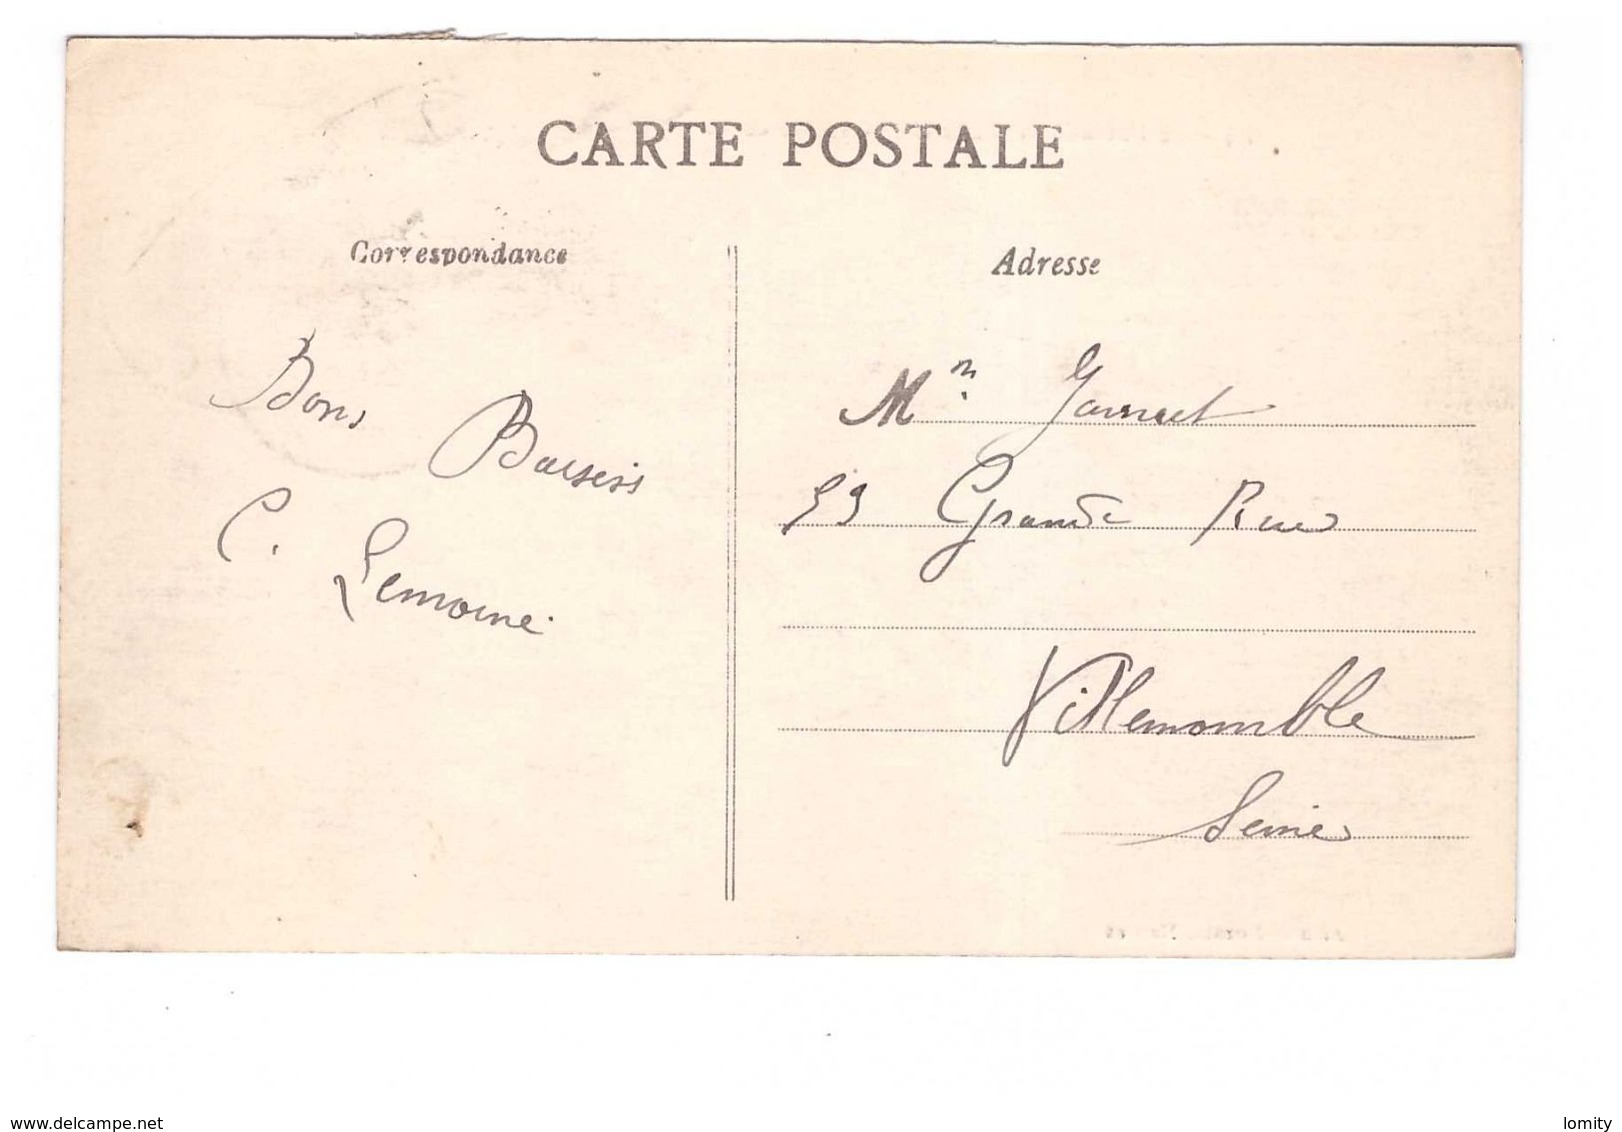 CARTE POSTALE
Correspondance
Adresse
Bons
Baisers
C. Lemoine.
Mn.
Grande Rue
Villemomble
Seine
www.delcampe.net
lomity